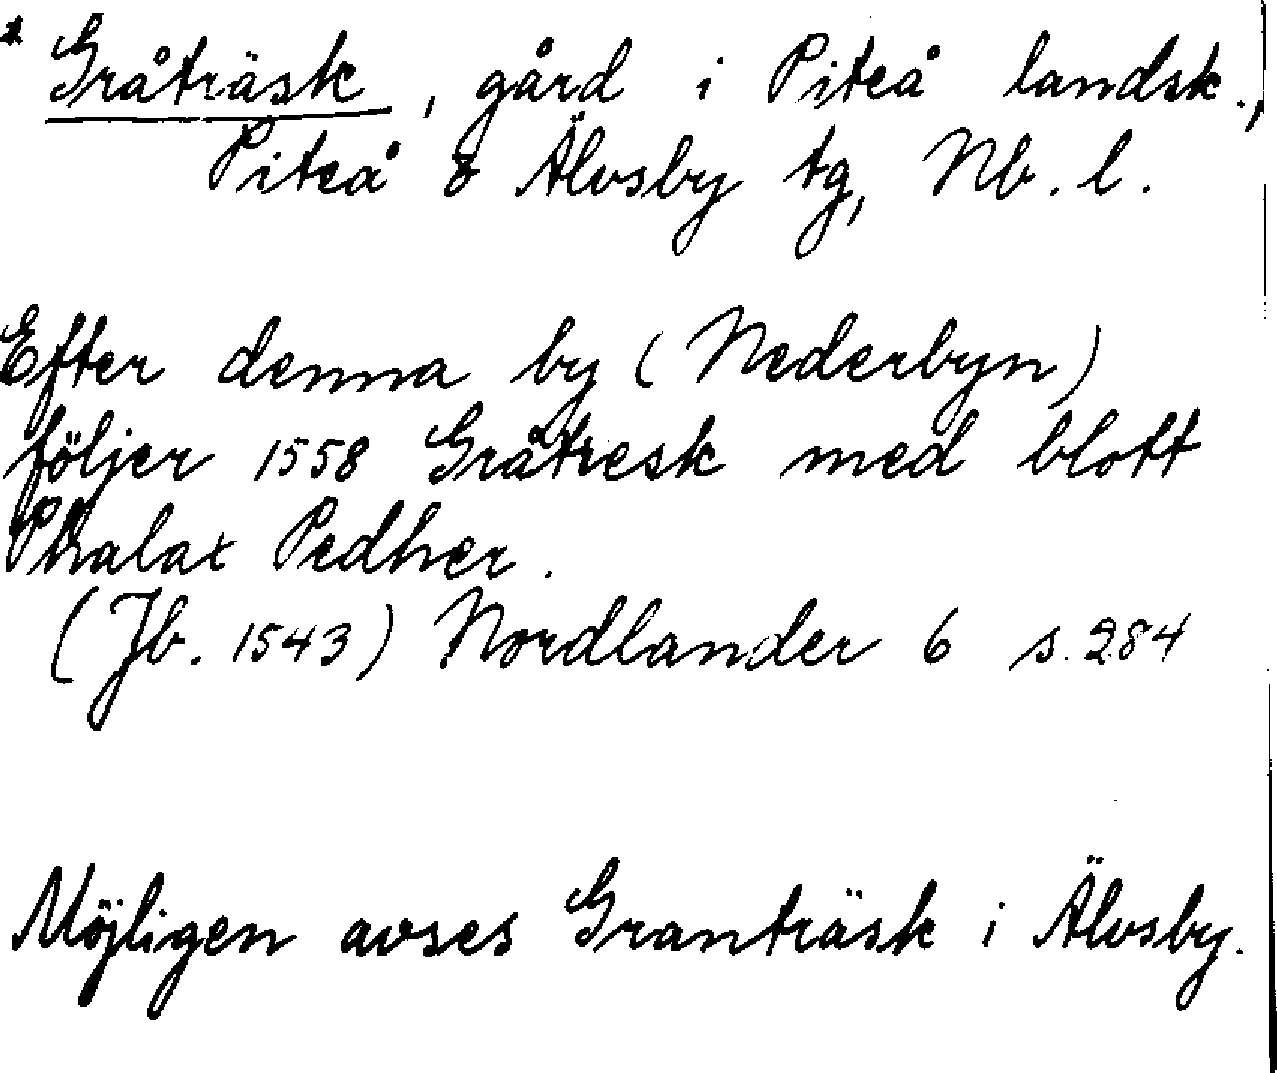 * Gråträsk, gård i Piteå landsk.,
Piteå & Älvsby tg, Nb. l.
Efter denna by (Nederbyn)
följer 1558 Gråtresk med blott
Phalax Pedher.
(Jb. 1543) Nordlander 6 s. 284
Möjligen avses Granträsk i Älvsby.